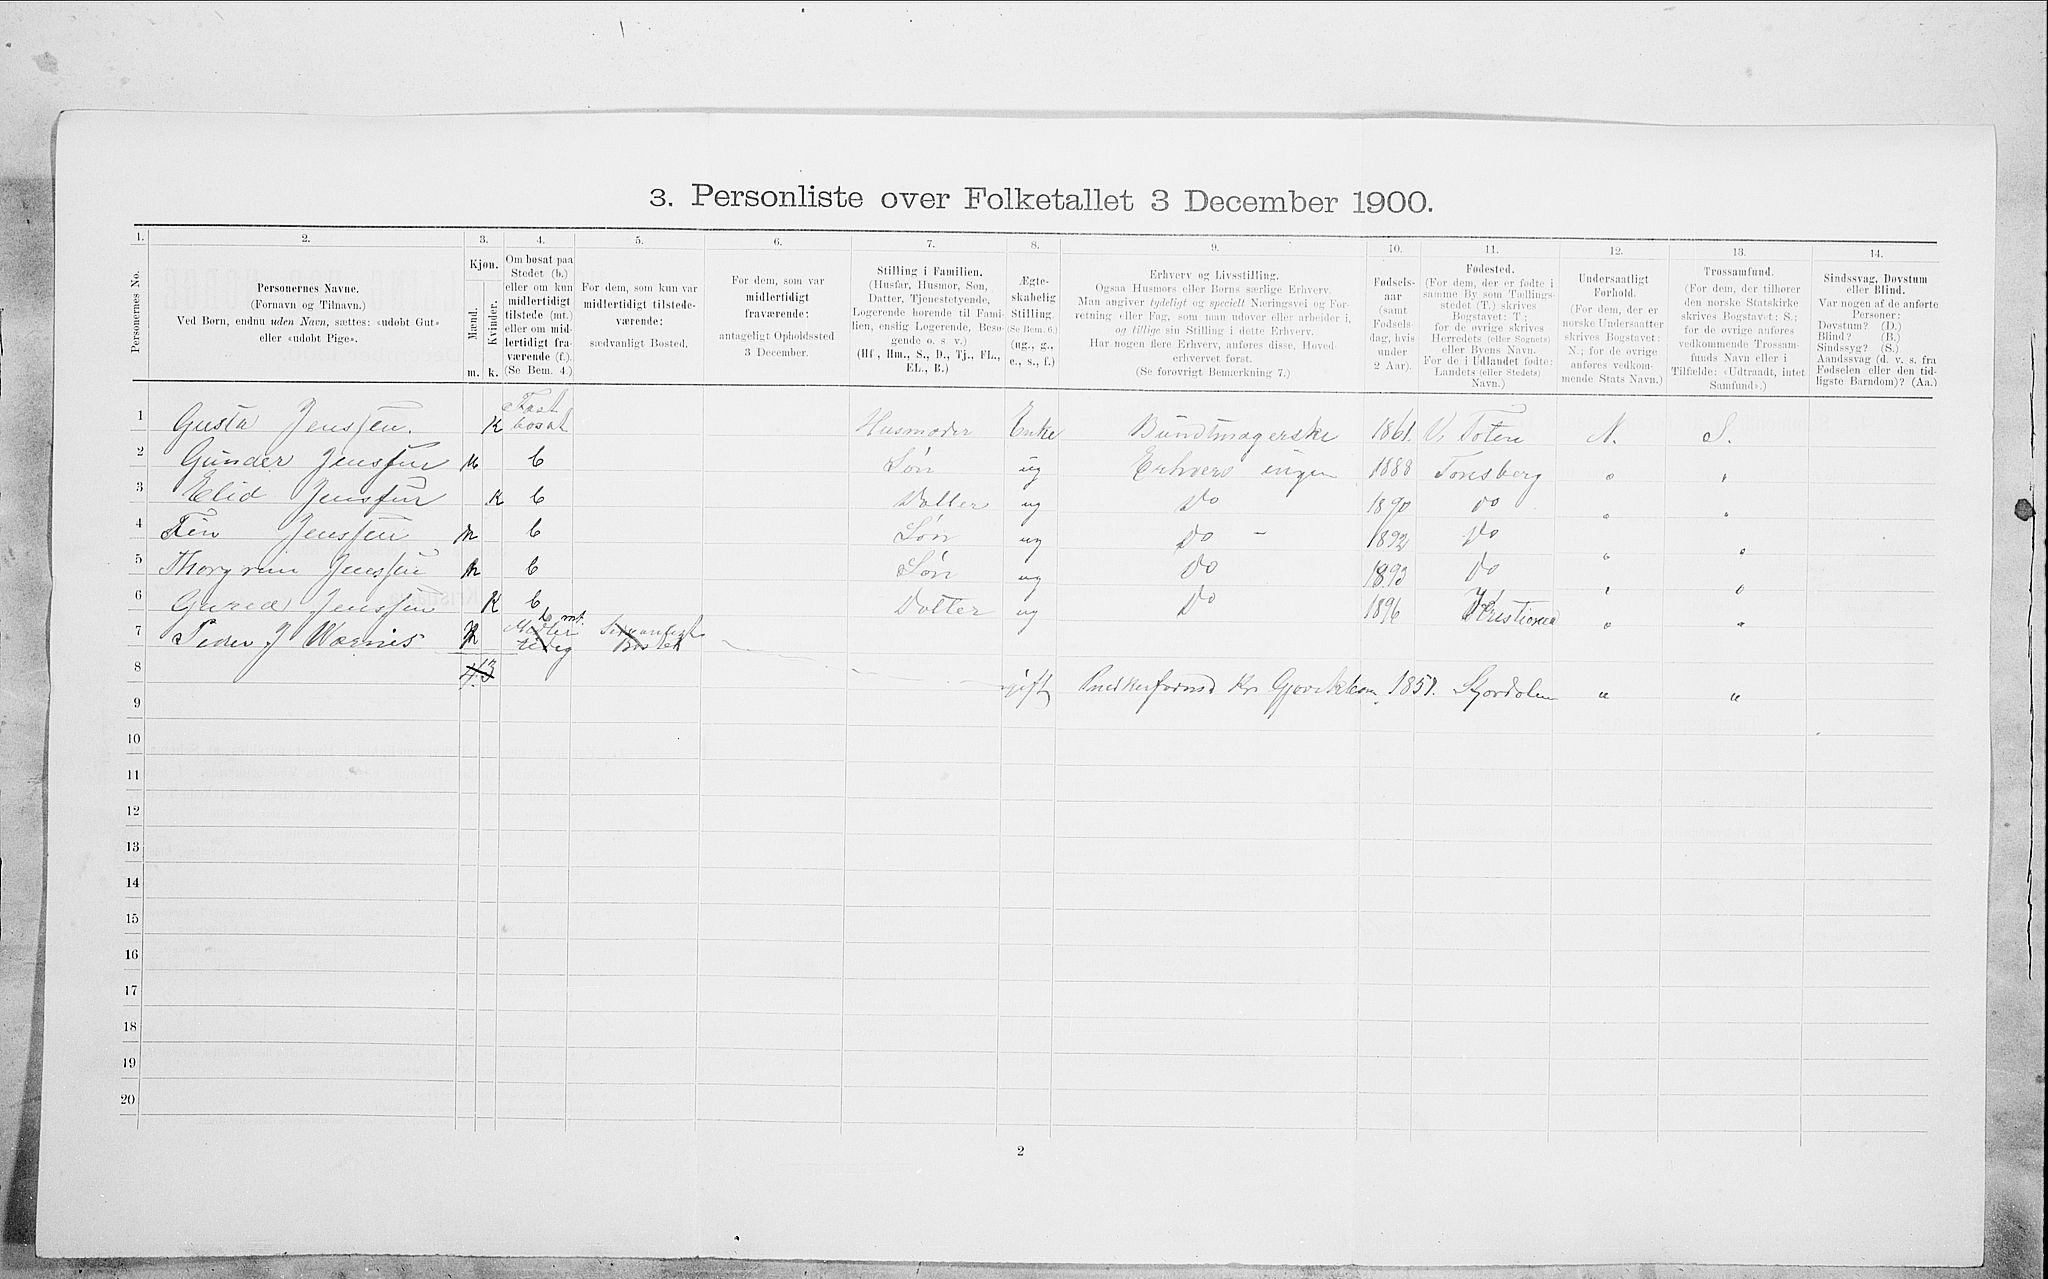 3. Personliste over Folketallet 3 December 1900.
1. 2. 3. 4. 5. 6. 7. 8. 9. 10. 11. 12. 13. 14.
Personernes No.
Personernes Navne.
(Fornavn og Tilnavn.)
Ved Børn, endnu uden Navn, sættes: «udobt Gut»
eller «udobt Pige».
Kjøn.
Mænd.
Kvinder.
m. k.
Om bosat paa
Stedet (b.)
eller om kun
midlertidigt
tilstede (mt.)
eller om mid-
lertidigt fra-
værende (f.).
(Se Bem. 4.)
For dem, som kun var
midlertidigt tilstede-
værende:
sædvanligt Bosted.
For dem, som var
midlertidigt
fraværende:
antageligt Opholdssted
3 December.
Stilling i Familien.
(Husfar, Husmor, Søn,
Datter, Tjenestetyende,
Logerende hørende til Fami-
lien, enslig Logerende, Besø-
gende o. s. v.)
(Hf., Hm., S., D., Tj., FL.,
EL., B.)
Ægte-
skabelig
Stilling.
(Se Bem. 6.)
(ug., g.,
e., s., f.)
Erhverv og Livsstilling.
Ogsaa Husmors eller Børns særlige Erhverv.
Man angiver tydeligt og specielt Næringsvei og For-
retning eller Fag, som man udøver eller arbeider i,
og tillige sin Stilling i dette Erhverv.
Har nogen flere Erhverv, anføres disse, Hoved-
erhvervet først.
(Se forøvrigt Bemærkning 7.)
Fødsels-
aar
(samt
Fødsels-
dag, hvis
under
2 Aar).
Fødested.
(For dem, der er fødte i
samme By som Tællings-
stedet (T.) skrives
Bogstavet: T.;
for de øvrige skrives
Herredets (eller Sognets)
eller Byens Navn.
For de i Udlandet fødte:
Landets (eller Stedets)
Navn.)
Undersaatligt
Forhold.
(For dem, der er
norske Undersaatter
skrives Bogstavet:
N.; for de øvrige
anføres vedkom-
mende Stats Navn.)
Trossamfund.
(For dem, der tilhører
den norske Statskirke
skrives Bogstavet: S.;
for de øvrige anføres
vedkommende Trossam-
funds Navn eller i
Tilfælde: «Udtraadt, intet
Samfund».)
Sindssvag, Døvstum
eller Blind.
Var nogen af de anførte
Personer:
Døvstum? (D.)
Blind? (B.)
Sindssyg? (S.)
Aandssvag (d. v. s. fra
Fødselen eller den tid-
ligste Barndom)? (Aa.)
1 Gusta Jenssen. K Fast bosat Husmoder Enke Bundtmagerske 1861. V. Toten N. S.
2 Gunder Jenssen m b Søn ug Erhverv ingen 1888 Tonsberg " "
3 Elid Jenssen K b Dotter ug Do 1890 Do " "
4 Fin Jenssen m b Søn ug Do - 1892 Do " "
5 Thorgrim Jenssen m b Søn ug Do 1893 Do " "
6 Jenssen K b Dotter ug Do 1896 Kristiania " "
7 Peder J m b mt. Midler tidig Bosted
8 4.3 gift Kr. 1851. Stjordalen " "
9
10
11
12
13
14
15
16
17
18
19
20
2